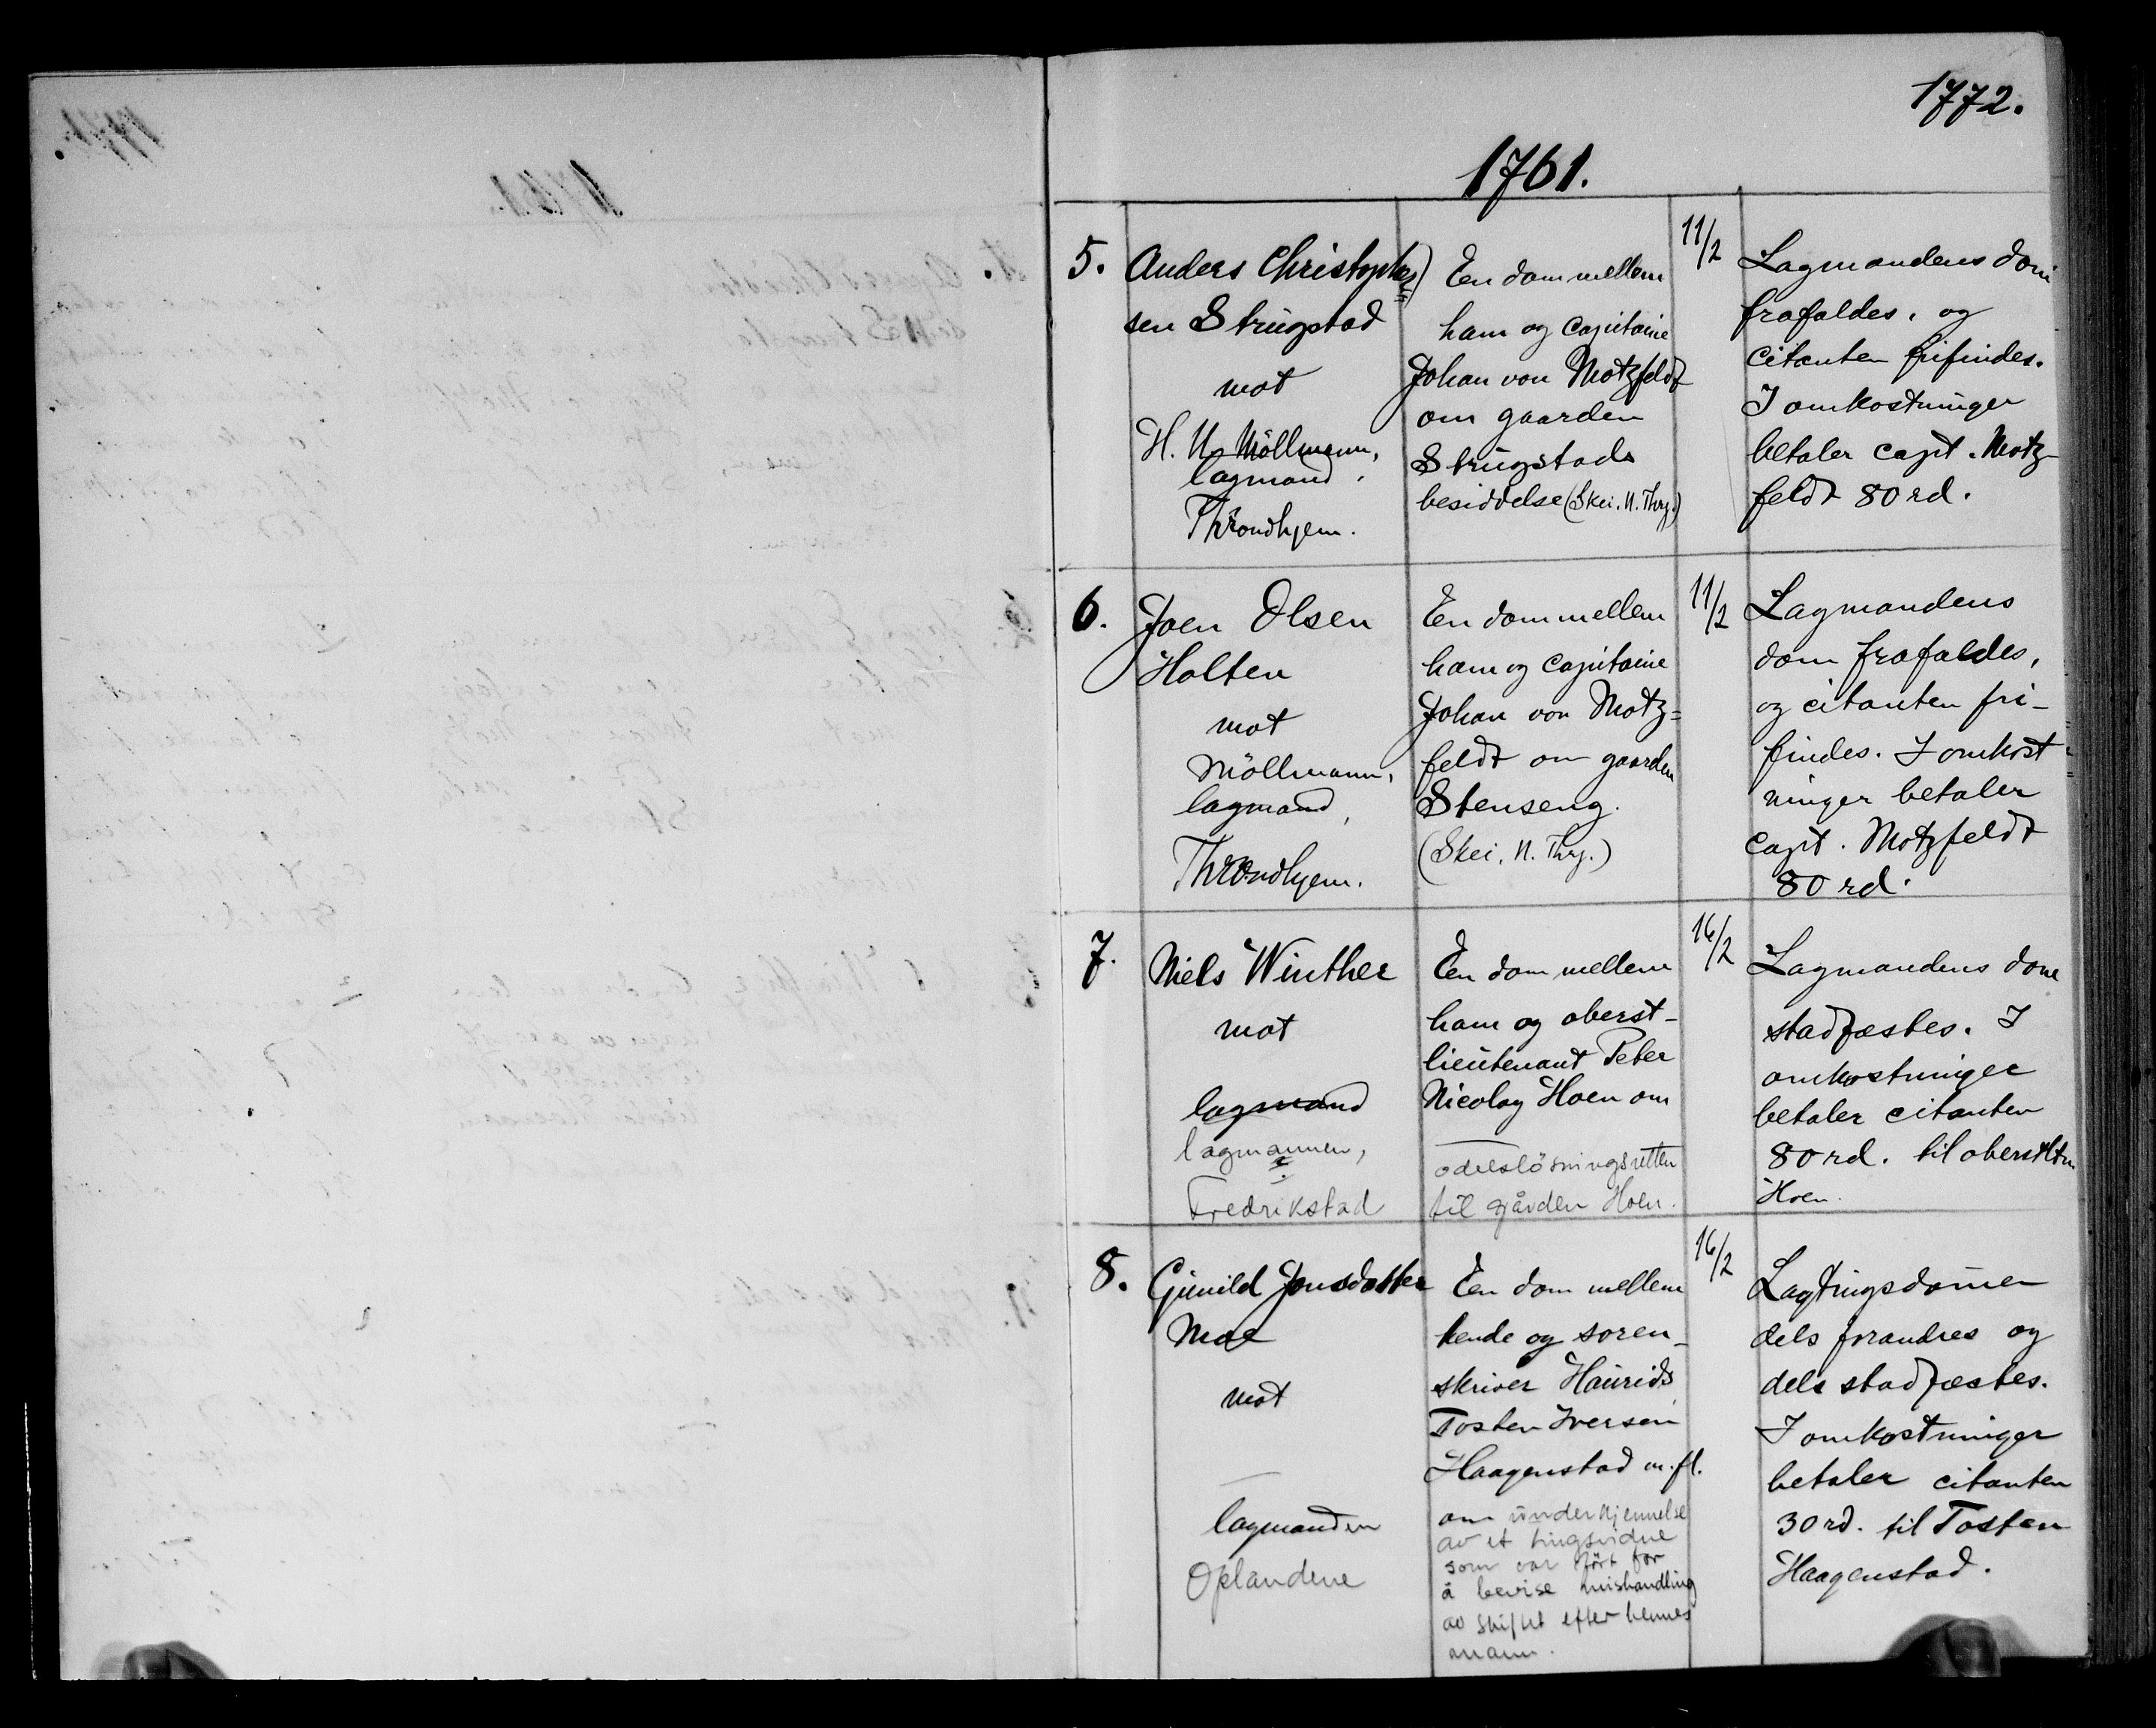 1772.
1761.
5.
Anders Christophers=
sen Strugstad
mot
H. U. Möllmann,
lagmand,
Throndhjem.
En dom mellem
ham og Capitaine
Johan von Motzfeldt
om gaarden
Strugstads
besiddelse (Skei, N. Thrj.)
11/2
Lagmandens dom
frafaldes, og
citanten frifindes.
I omkostninger
betaler capt. Motz-
feldt 80 rd.
6.
Joen Olsen
Holten
mot
Möllmann,
lagmand,
Throndhjem.
En dom mellem
ham og Capitaine
Johan von Motz=
feldt om gaarden
Stenseng.
(Skei, N. Thrj.)
11/2
Lagmandens
dom frafaldes,
og citanten fri-
findes. I omkost=
ninger betaler
capt. Motzfeldt
80 rd.
7.
Niels Winther
mot
lagmand
lagmannen,
Fredrikstad
En dom mellem
ham og oberst-
lieutenant Peter
Nicolay Hoen om
odelslösningsretten
til gården Hoen.
16/2
Lagmandens dom
stadfæstes. I
omkostninger
betaler citanten
80 rd. til oberstltn
Hoen.
8.
Gunild Jonsdatter
Moe
mot
lagmanden
Oplandene
En dom mellem
hende og soren-
skriver Haurids
Tosten Iversen
Haagenstad m. fl.
om underkjennelse
av et tingsvidne
som var fört for
å bevise mishandling
av skiftet efter hennes
mann.
16/2
Lagtingsdommen
dels forandres og
dels stadfæstes.
I omkostninger
betaler citanten
30 rd. til Tosten
Haagenstad.